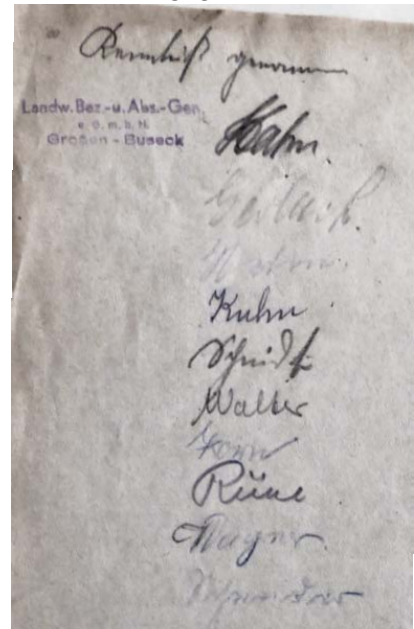 Kenntniß genommen
Landw. Bez.-u. Abs.-Gen.
e. G. m. b. H.
Großen-Buseck
Hahn.
Gerlach.
Kuhn
Schmidt
Walter
Wagner
Schneider